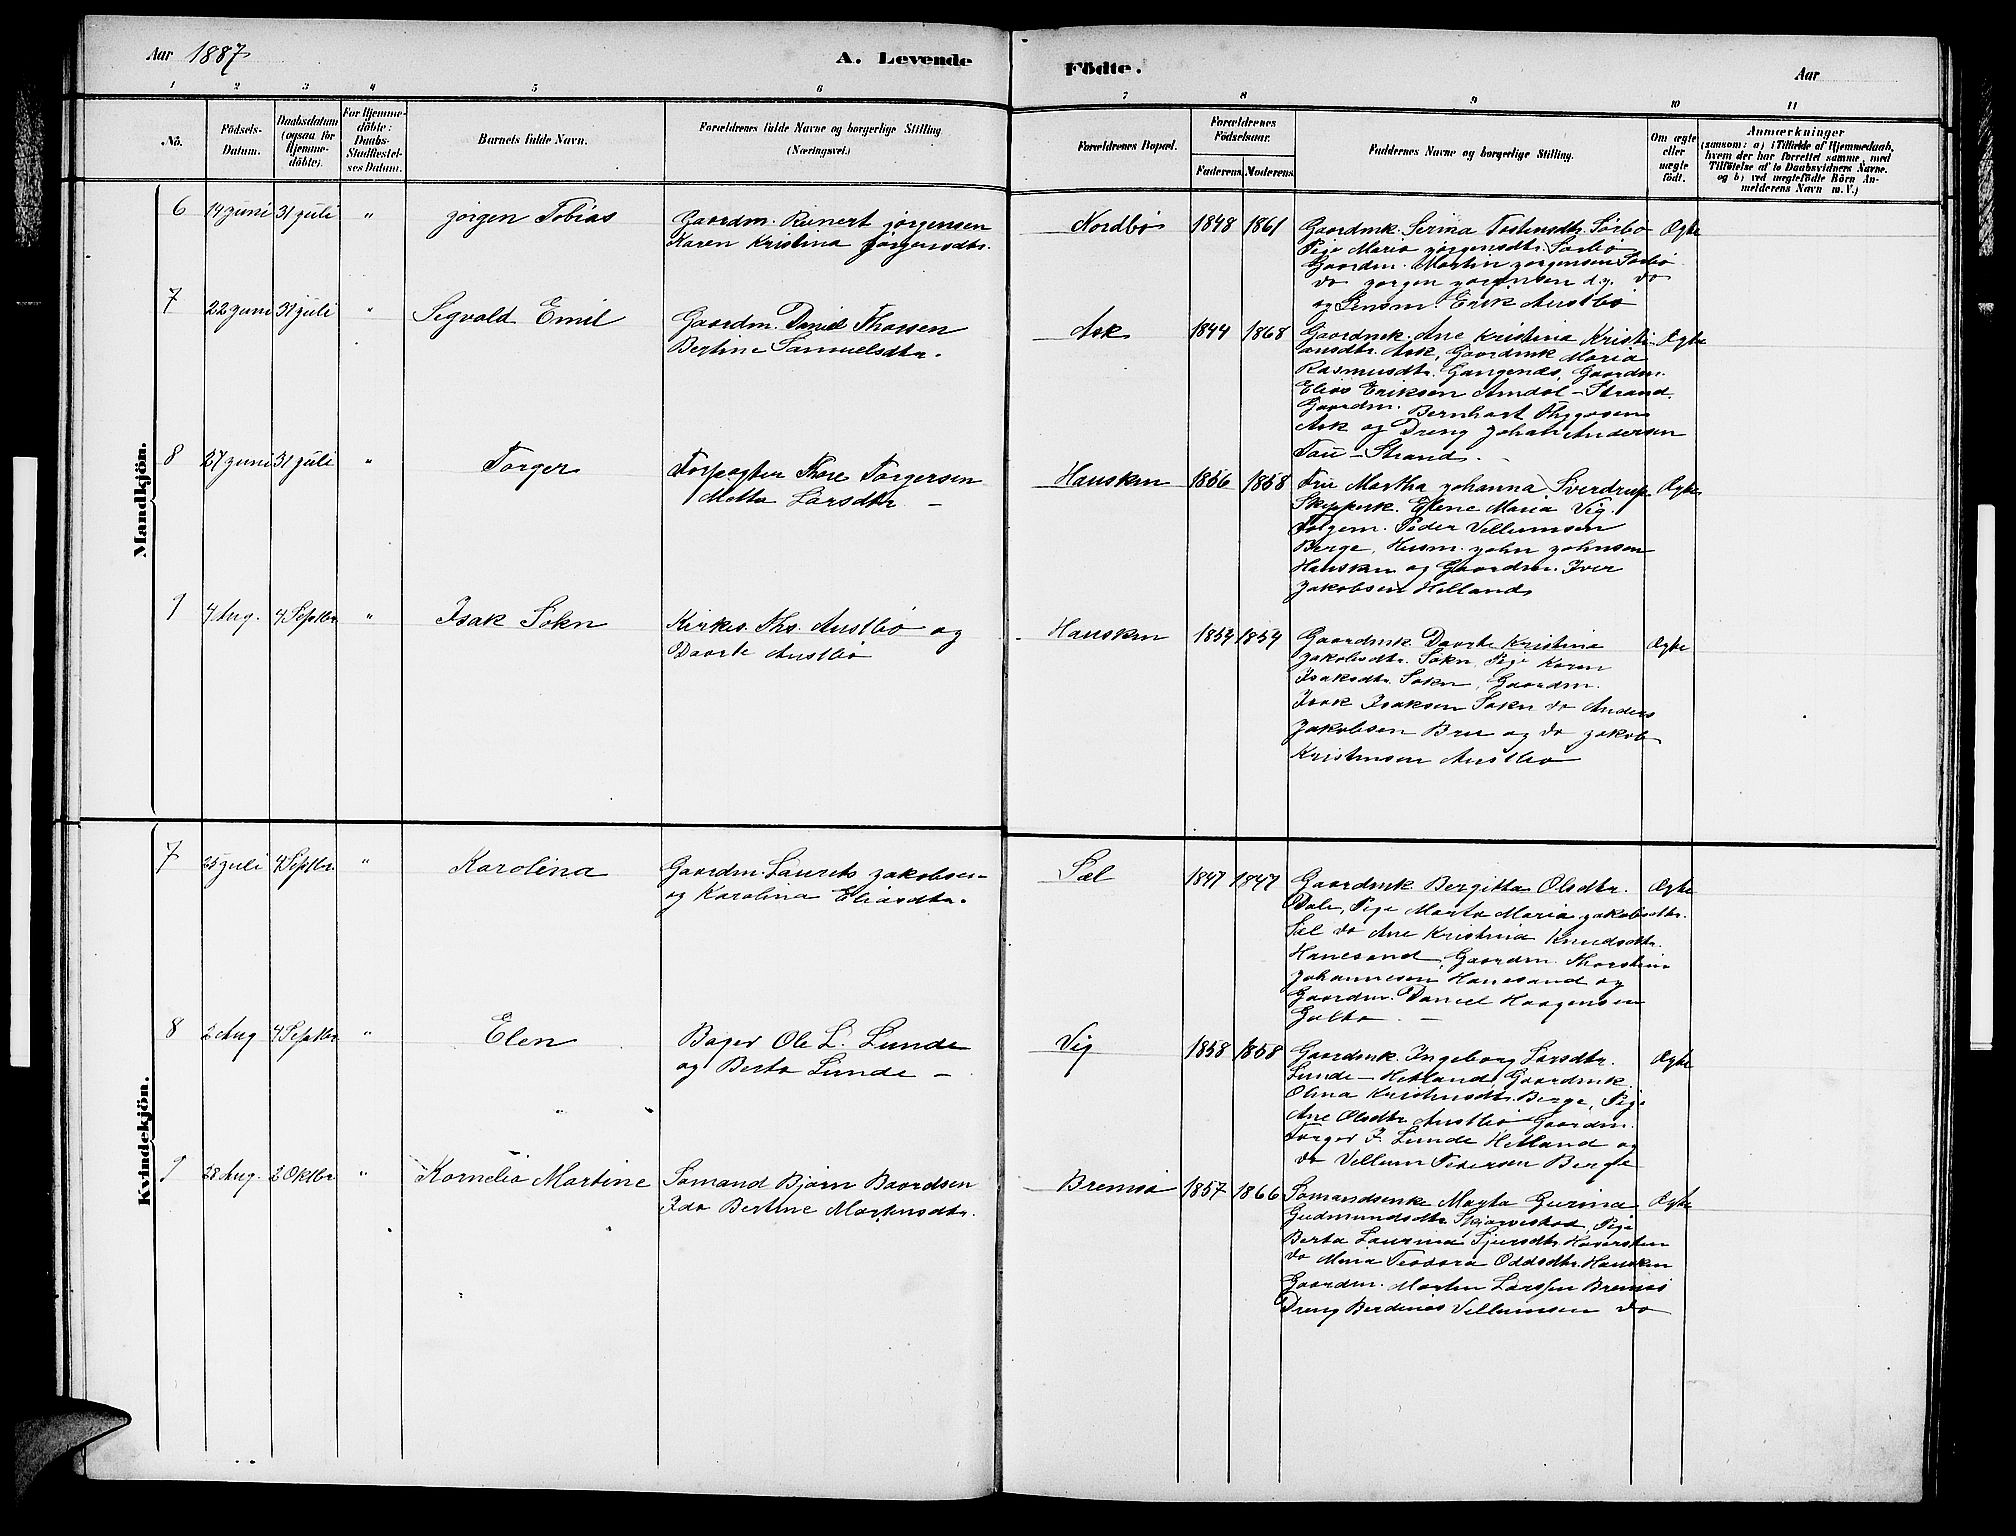 Aar 1887
A. Levende
Födte.
Aar
1 2 3 4 5 6
7 8 9 10 11
No.
Födsels-
Datum.
Daabsdatum
(ogsaa for
Hjemme-
döbte).
For Hjemme-
döbte:
Daabs-
Stadfæstel-
ses Datum.
Barnets fulde Navn.
Forældrenes fulde Navne og borgerlige Stilling
(Næringsvei.)
Forældrenes Bopæl.
Forældrenes
Födselsaar.
Faderens Moderens
Faddernes Navne og borgerlige Stilling.
Om ægte
eller
uægte
födt.
Anmærkninger
(saasom: a) i Tilfælde af Hjemmedaab,
hvem der har forrettet samme, med
Tilföielse af to Daabsvidners Navne.
og b) ved uægtefödte Börn An-
melderens Navn m. V.)
Mandkjön.
6 14 juni 31 juli " jörgen Tobias
Gaardm. Reinert jörgensen
Karen Kristina jörgensdtr.
Nordbö 1848 1861
Gaardmk. Serina Tostensdtr. Sörbö
Pige Maria jörgensdtr. Sörbö
Gaardm. Martin jörgensen Sörbö
do jörgen jörgensen d.y. do
og Lensm. Erik Austbö
Ægte
7 22 juni 31 juli " Sigvald Emil
Gaardm. Daniel Thossen
Bertine Samuelsdtr.
Ask 1844 1868
Gaardmk. Ane Kristina Kristi-
ansdtr. Ask, Gaardmk Maria
Rasmusdtr. Gangenæs, Gaardm.
Elias Eriksen Amdal - Strand.
Gaardm. Bernhart Thygesen
Ask og Dreng johan Andersen
Tau - Strand.
Ægte
8 27 juni 31 juli " Torger
Forpagter Thore Torgersen
Metta Larsdtr. -
Hausken 1856 1858
Fru Martha johanna Sverdrup
Skipperk. Elene Maria Vig.
Folgem. Peder Vellumsen
Berge, Husm. john johnsen
Hausken og Gaardm. Iver
jakobsen Helland
Ægte
9 4 Aug. 4 Septbr " Isak Sokn
Kirkes. Ths. Austbö og
Daarte Austbö
Hausken 1854 1854
Gaardmk. Daarte Kristina
jakobsdtr. Sokn, Pige Karen
Isaksdtr. Sokn, Gaardm.
Isak Isaksen Sokn do Anders
jakobsen Bru og do jakob
Kristensen Austbö
Ægte
Kvindekjön.
7 25 juli 4 Septbr " Karolina
Gaardm. Laurits jakobsen
og Karolina Eliasdtr.
Sel 1847 1847
Gaardmk Bergitha Olsdtr.
Dale, Pige Marta Maria jakobsdtr.
Sel do Ane Kristina Knudsdtr.
Hanesand, Gaardm. Thorstein
johannesen Hanesand og
Gaardm. Daniel Haagensen
Galta. -
Ægte
8 2 Aug 4 Septbr " Elen
Bager Ole L. Lunde
og Berta Lunde -
Vig 1858 1858
Gaardmk. Ingeborg Larsdtr.
Lunde - Hetland, Gaardmk.
Olina Kristensdtr. Berge, Pige
Ane Olsdtr. Austbö Gaardm.
Torger J. Lunde Hetland og
do Vellum Pedersen Berge
Ægte
9 28 Aug. 2 Oktbr " Kornelia Martine
Sömand Björn Baardsen
Ida Bertine Mortensdtr.
Bremsö 1857 1866
Sömandsenke Magta Gurina
Gudmundsdtr. Skjörvestad, Pige
Berta Laurina Sjursdtr. Haversten
do Mina Teodora Oddsdtr. Hausken
Gaardm. Morten Larssen Bremsö
Dreng Berdinus Vellumsen do
Ægte